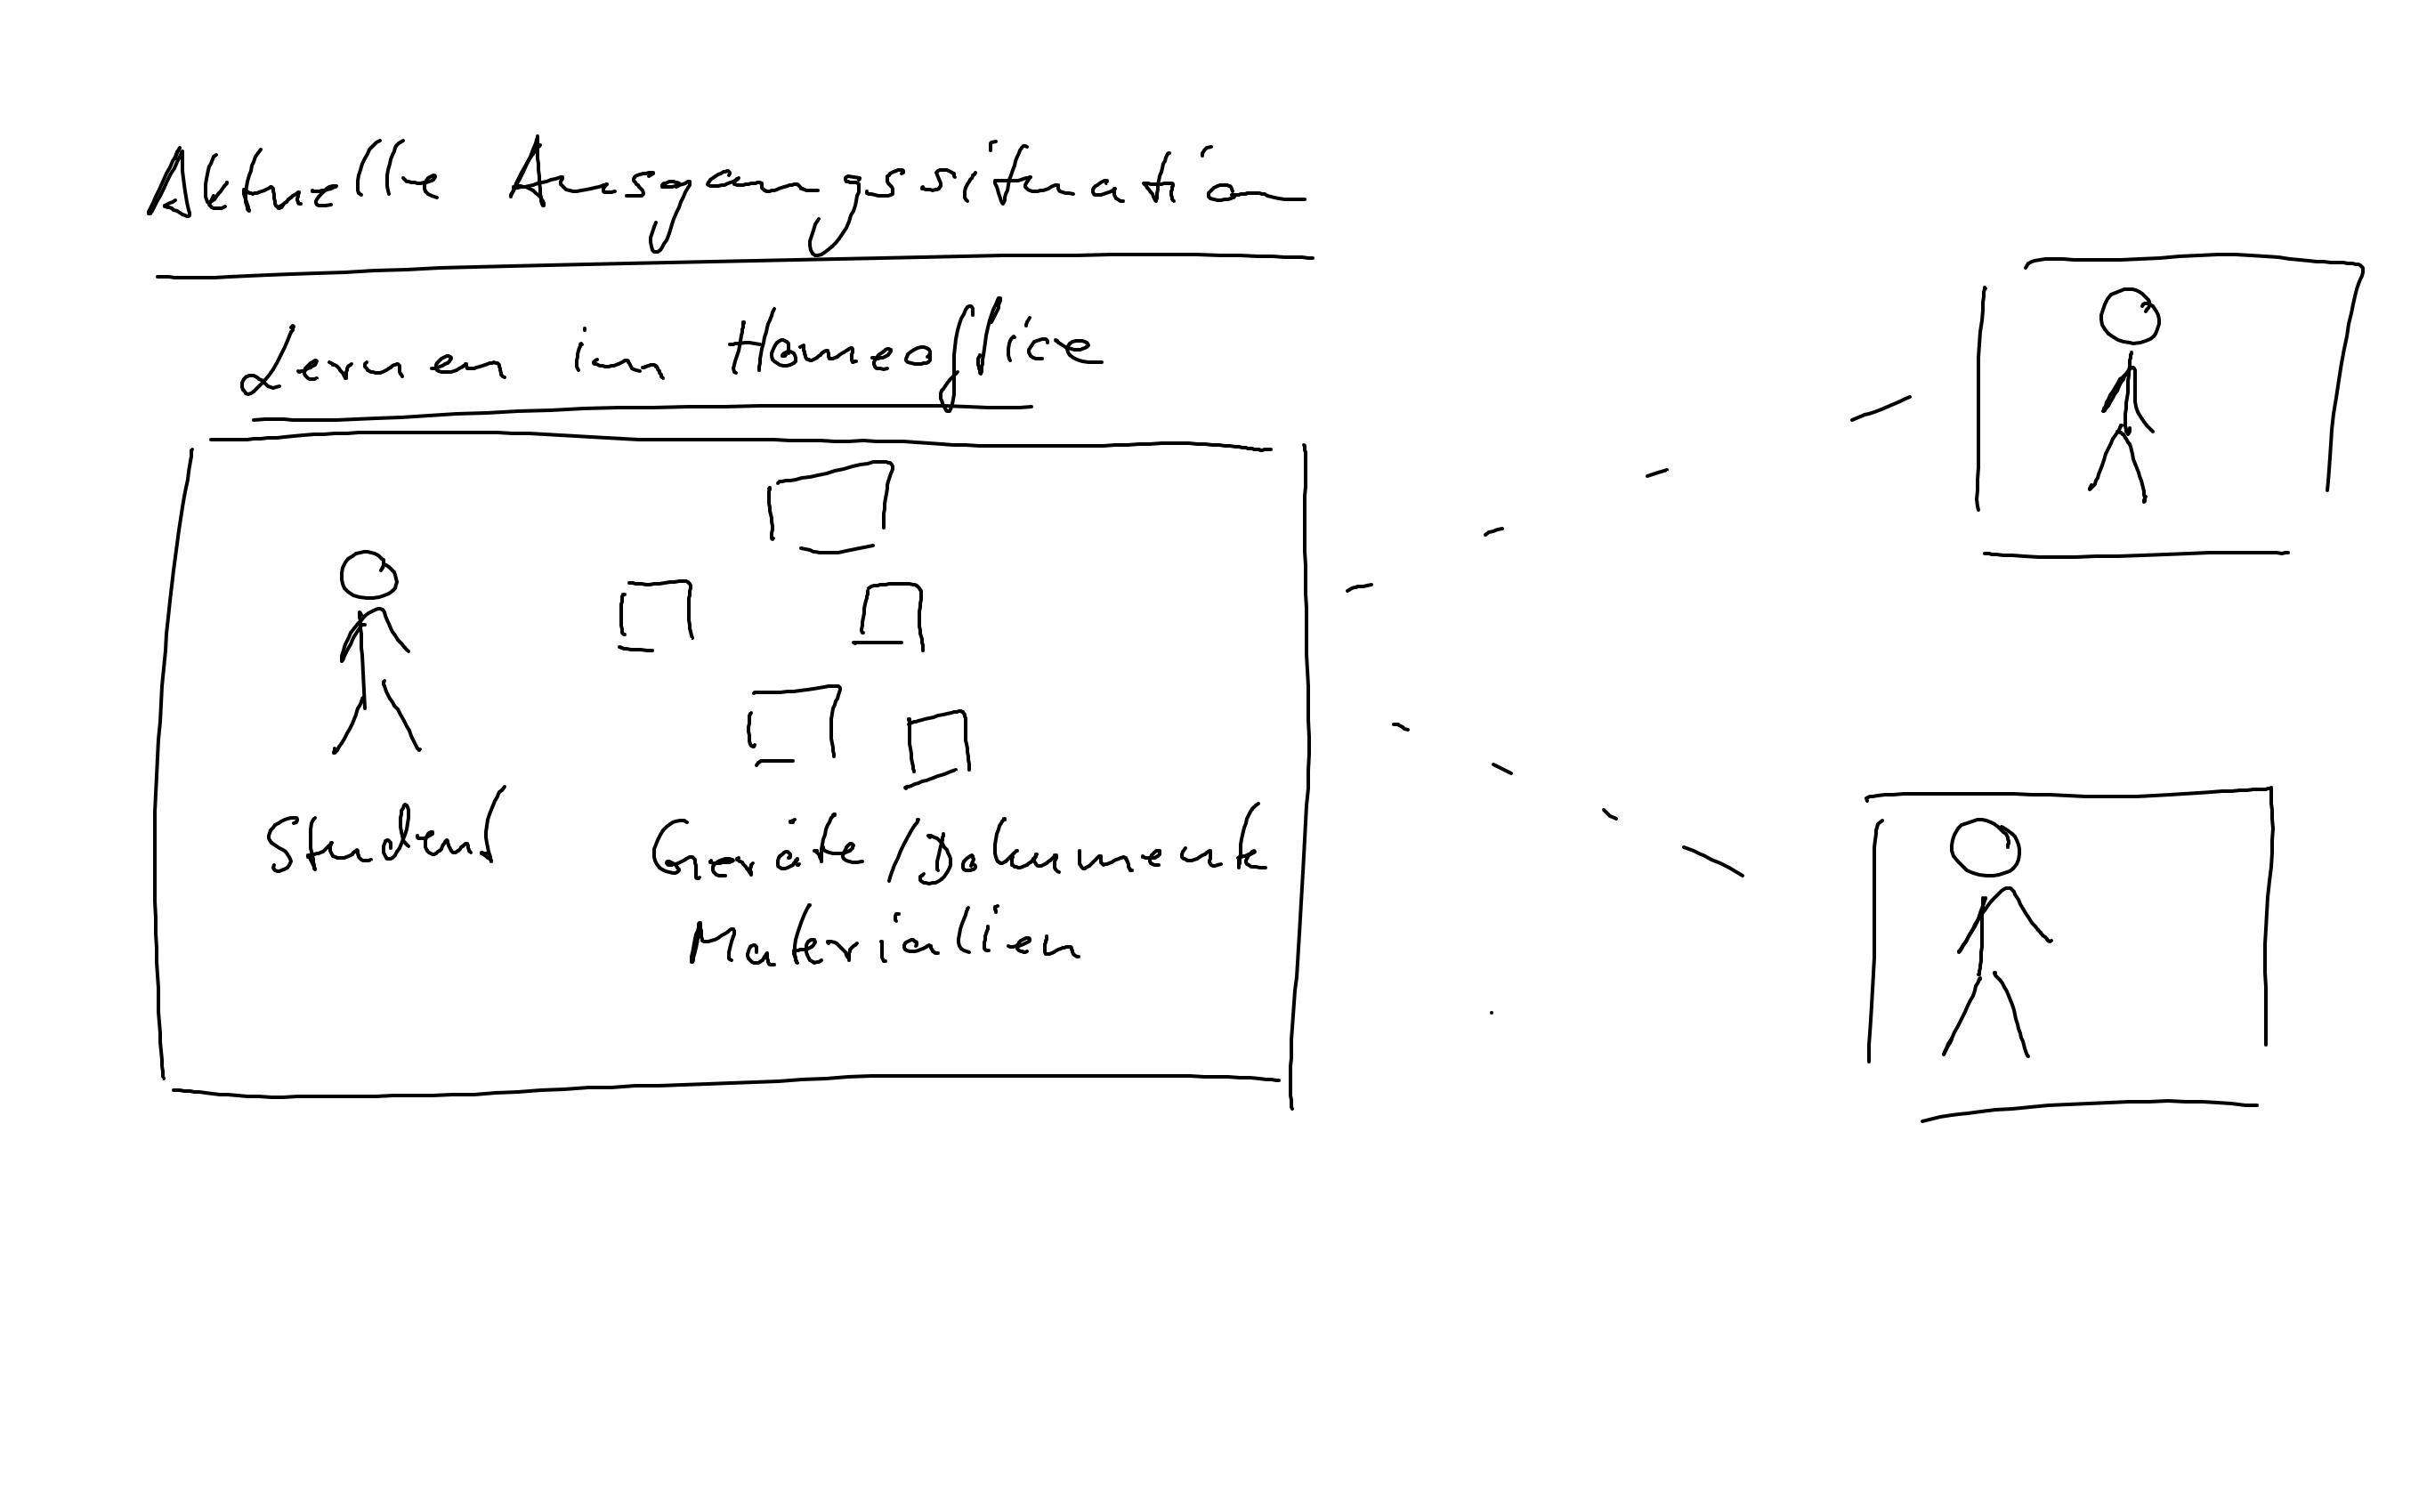 Aktuelle Ausgangssituation
Lernen im Homeoffice
Student
Geräte/Dokumente
Materialien